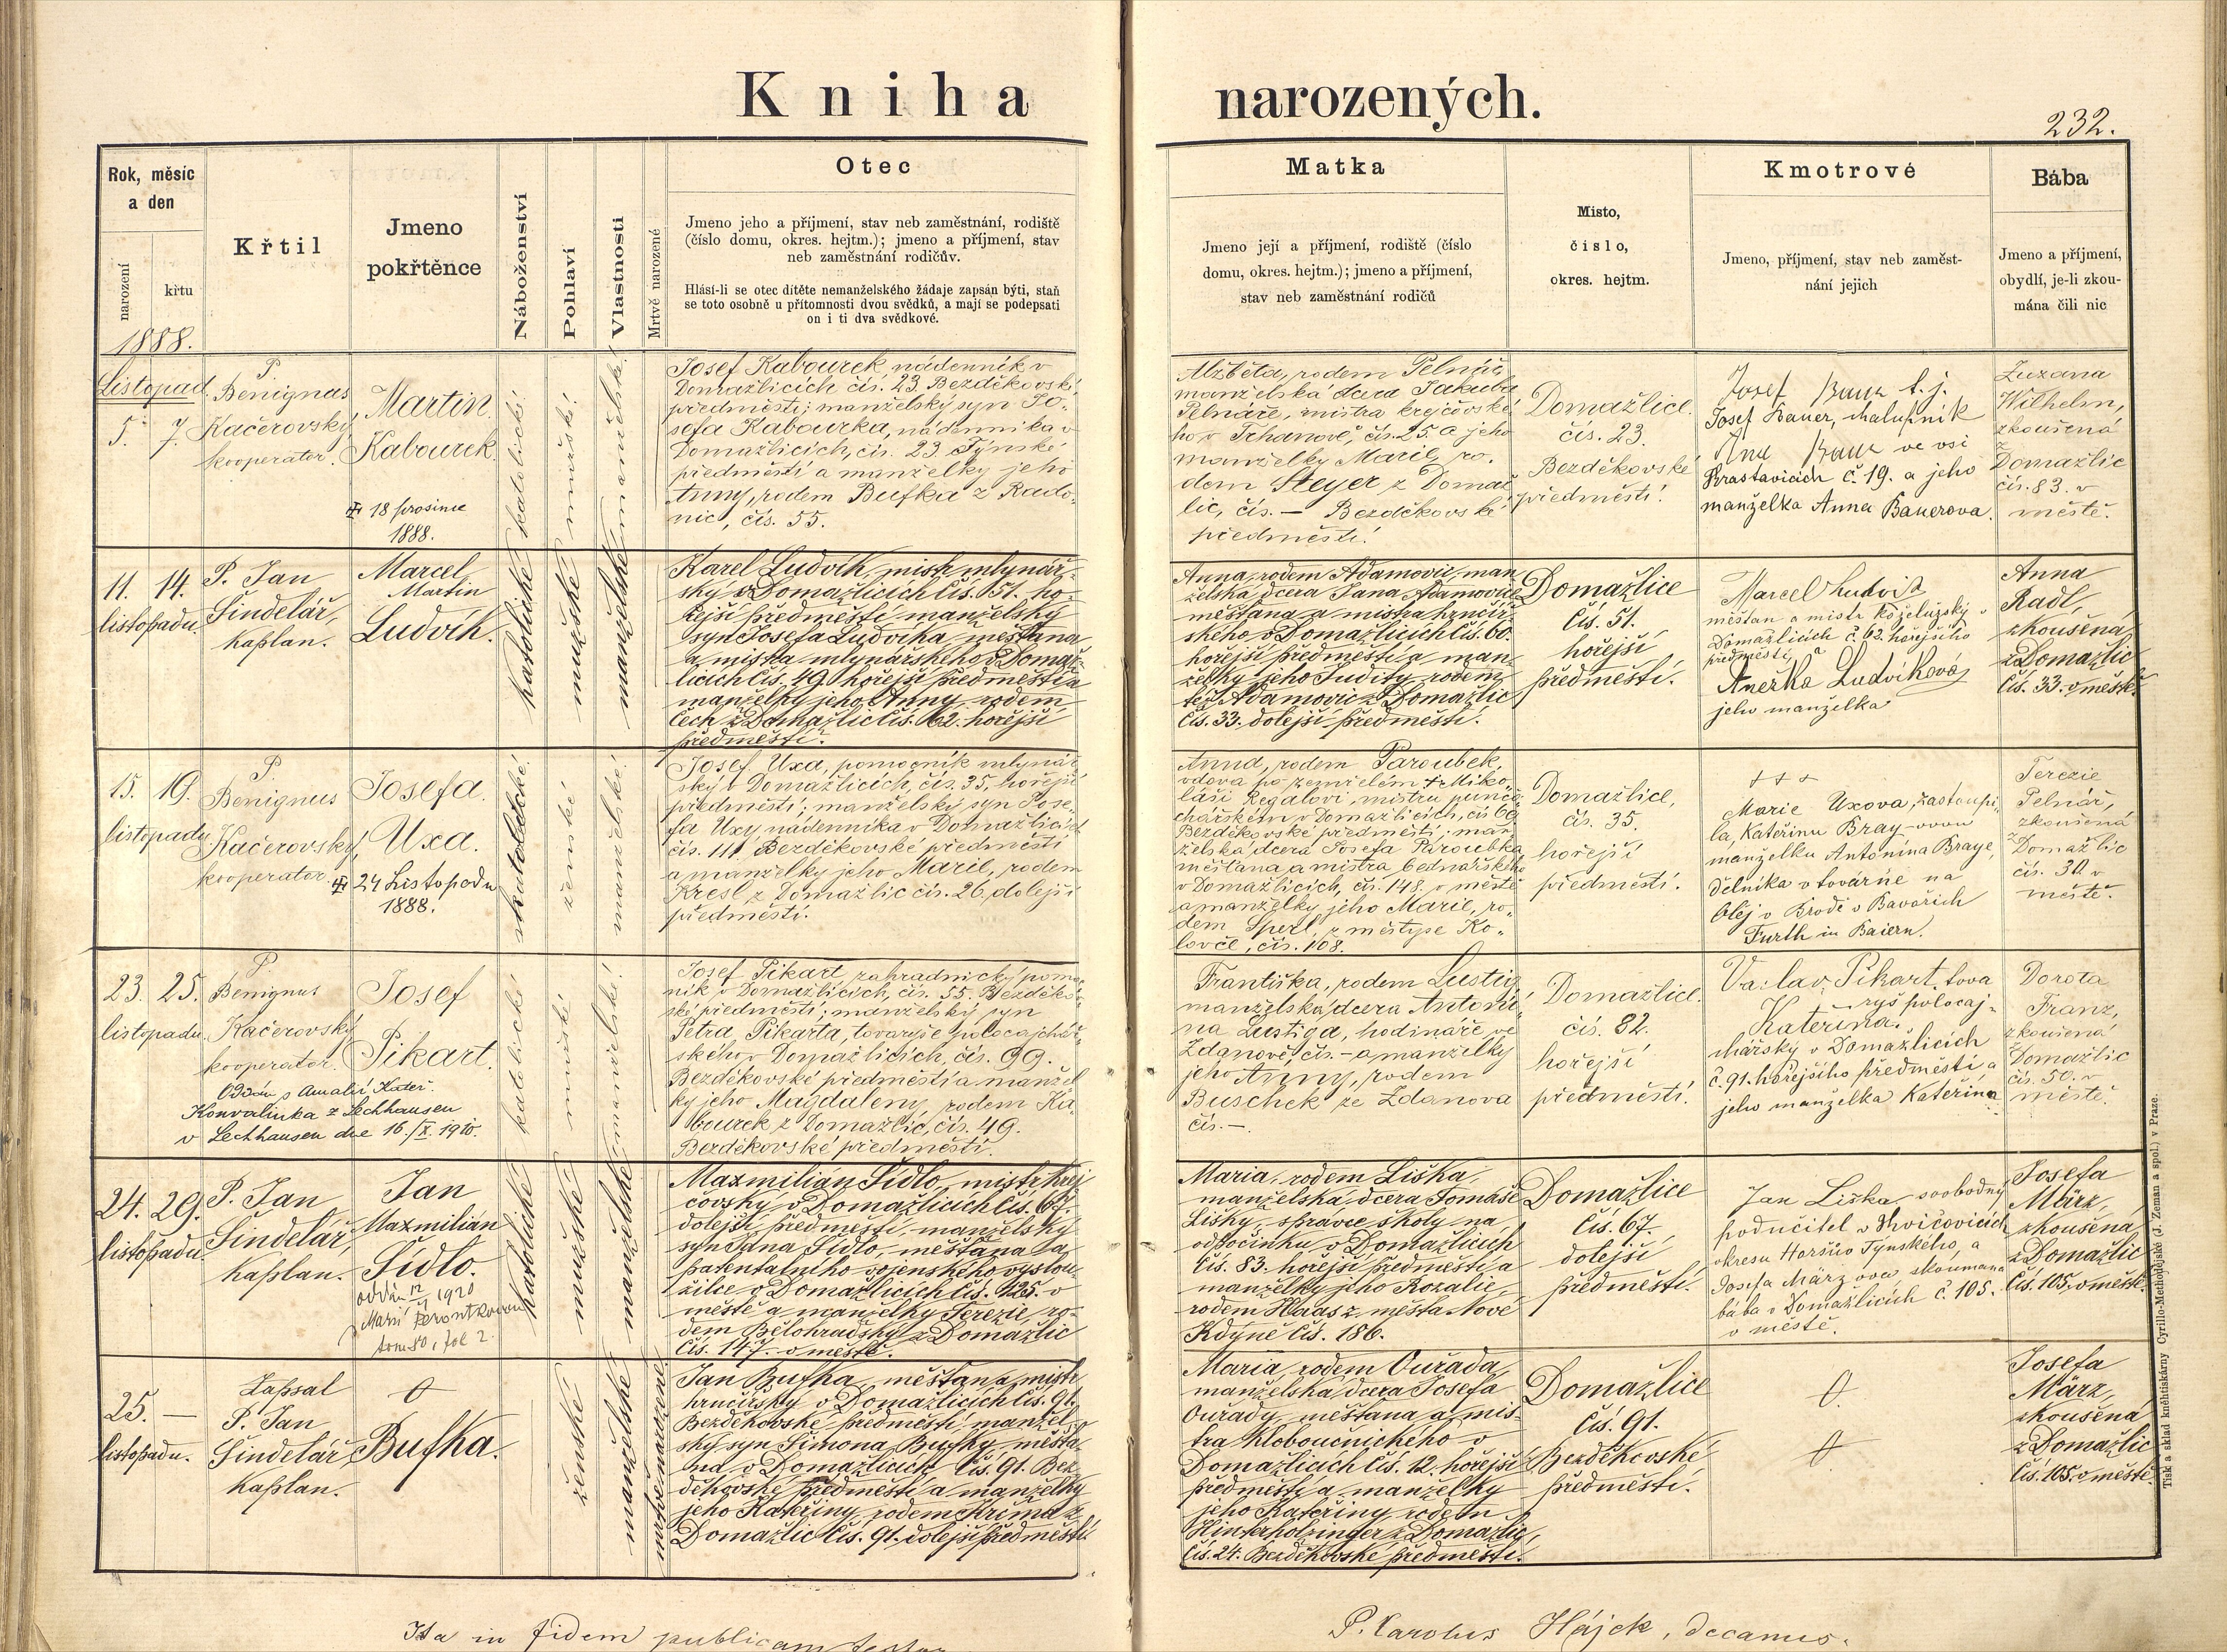 Kniha narozených.
232.
Rok, měsíc
a den
narození
křtu
Křtil
Jmeno
pokřtěnce
Náboženství
Pohlaví
Vlastnosti
Mrtvě narozené
Otec
Jmeno jeho a příjmení, stav neb zaměstnání, rodiště
(číslo domu, okres. hejtm.); jmeno a příjmení, stav
neb zaměstnání rodičův.
Hlásí-li se otec dítěte nemanželského žádaje zapsán býti, staň
se toto osobně u přítomnosti dvou svědků, a mají se podepsati
on i ti dva svědkové.
Matka
Jmeno její a příjmení, rodiště (číslo
domu, okres. hejtm.); jmeno a příjmení,
stav neb zaměstnání rodičů
Misto,
číslo,
okres. hejtm.
Kmotrové
Jmeno, příjmení, stav neb zaměst-
nání jejich
Bába
Jmeno a příjmení,
obydlí, je-li zkou-
mána čili nic
1888.
Listopad
5. 7.
P.
Benignus
Kačerovský,
kooperator.
Martin
Kabourek
18 prosince
1888.
katolické
mužské
manželské
Josef Kabourek nádenník v
Domažlicích čís. 23 Bezděkovské
předměstí; manželský syn Jo-
sefa Kabourka, nádenníka v
Domažlicích, čís. 23 Týnské
předměstí a manželky jeho
Anny, rodem Bufka z Rado-
nic, čís. 55.
Alžběta, rodem Pelnář,
manželská dcera Jakuba
Pelnáře, mistra krejčovské
ho v Trhanově, čís. 25. a jeho
manželky Marie, ro-
dem Steyer z Domaž
lic, čís. — Bezděkovské
předměstí.
Domažlice
čís. 23.
Bezděkovské
předměstí.
Josef Baur
Josef Bauer, chalupník
Ana Baur ve vsi
Chrastavicích č. 19. a jeho
manželka Anna Bauerova.
Zuzana
Wilhelm,
zkoušená
z
Domažlic
čís. 83. v
městě.
11. 14.
listopadu.
P. Jan
Šindelář,
kaplan.
Marcel
Martin
Ludvík.
katolické
mužské
manželské
Karel Ludvík, mistr mlynář-
ský v Domažlicích čís. 51. ho-
řejší předměstí, manželský
syn Josefa Ludvíka, měšťana
a mistra mlynářského v Domaž-
licích čís. 49. hořejší předměstí a
manželky jeho Anny, rodem
Čech z Domažlic čís. 62. hořejší
předměstí.
Anna, rodem Adamovic, man
želská dcera Jana Adamovice
měšťana a mistra hrnčíř-
ského v Domažlicích čís. 60.
hořejší předměstí a man-
želky jeho Judity, rodem
též Adamovic z Domažlic
čís. 33. dolejší předměstí.
Domažlice
čís. 51.
hořejší
předměstí.
Marcel Ludvík
měšťan a mistr koželužský v
Domažlicích č. 62. hořejšího
předměstí, a
Anežka Ludvíková
jeho manželka
Anna
Radl,
zkoušená
z Domažlic
čís. 33. v městě.
15. 19.
listopadu
P.
Benignus
Kačerovský,
kooperator.
Josefa
Uxa.
24 Listopadu
1888.
katolické
ženské
manželské
Josef Uxa, pomocník mlynář
ský v Domažlicích, čís. 35, hořejší
předměstí; manželský syn Jose-
fa Uxy, nádenníka v Domažlicích
čís. 111 Bezděkovské předměstí
a manželky jeho Marie, rodem
Kresl z Domažlic čís. 26. dolejší
předměstí.
Anna, rodem Paroubek,
vdova po zemřelém Miko-
láši Regalovi, mistru punčo-
chářském v Domažlicích, čís 69
Bezděkovské předměstí; man-
želská dcera Josefa Paroubka
měšťana a mistra bednářského
v Domažlicích, čís. 148. v městě
a manželky jeho Marie, ro-
dem Sperl, z městyse Ko-
lovče, čís. 108.
Domažlice,
čís. 35.
hořejší
předměstí.
+++
Marie Uxova, zastoupi-
la, Kateřinu Bray-ovou
manželku Antonína Braye,
dělníka v továrně na
olej v Brodě v Bavořích
Furth in Baiern.
Terezie
Pelnář,
zkoušená
z
Domažlic
čís. 30. v
městě.
23. 25.
listopadu.
P.
Benignus
Kačerovský
kooperator.
Oddán s Amalií Kateř.
Konvalinka z Lechhausen
v Lechhausen dne 16./X. 1910.
Josef
Pikart.
katolické
mužské
manželské
Josef Pikart, zahradnický pomoc-
ník v Domažlicích, čís. 55. Bezděkov-
ské předměstí; manželský syn
Petra Pikarta, tovaryše polocajchář-
ského v Domažlicích, čís. 99.
Bezděkovské předměstí a manžel
ky jeho Magdaleny, rodem Ka
bourek z Domažlic, čís. 49.
Bezděkovské předměstí.
Františka, rodem Lustig,
manželská dcera Antoní-
na Lustiga, hodináře ve
Zdanově, čís. – a manželky
jeho Anny, rodem
Buschek ze Zdanova
čís. —.
Domažlice.
čís. 82.
hořejší
předměstí.
Vaclav Pikart, tova
ryš polocaj-
Kateřina.
chářský v Domažlicích
č. 91. hořejšího předměstí a
jeho manželka Kateřina
Dorota
Franz,
zkoušená
z
Domažlic
čís. 50. v
městě.
24. 29.
listopadu.
P. Jan
Šindelář,
kaplan.
Jan
Maxmilián
Šídlo.
oddán 12/1 1920
Marií
tom 80, fol 2.
katolické
mužské
manželské
Maxmilián Šídlo, mistr krej
čovský v Domažlicích čís. 67.
dolejší předměstí, manželský
syn Jana Šídlo, měšťana a
patentálního vojenského vyslou-
žilce v Domažlicích čís. 125. v
městě a manželky Terezie, ro-
dem Bělohradský z Domažlic
čís. 147. v městě.
Maria, rodem Liška,
manželská dcera Tomáše
Lišky, správce školy na
odpočinku v Domažlicích
čís. 83. hořejší předměstí a
manželky jeho Rozalie,
rodem Haas z města Nové
Kdyně čís. 186.
Domažlice
čís. 67.
dolejší
předměstí.
Jan Liška, svobodný
podučitel v
okresu Horšův Týnského, a
Josefa Märzova skoumaná
bába v Domažlicích č. 105.
v městě.
Josefa
März,
zkoušená
z Domažlic
čís. 105. v městě.
25. —
listopadu.
Zapsal
P. Jan
Šindelář,
kaplan.
Bufka.
ženské
manželské
mrtvě narozené
Jan Bufka, měšťan a mistr
hrnčířský v Domažlicích čís. 91.
Bezděkovské předměstí, manžel-
ský syn Šimona Bufky, měšťa-
na v Domažlicích čís. 91. Bez-
děkovské předměstí a manželky
jeho Kateřiny, rodem Křima z
Domažlic čís. 91. dolejší předměstí.
Maria, rodem Ouřada,
manželská dcera Josefa
Ouřady, měšťana a mis-
tra kloboučnického v
Domažlicích čís. 12. hořejší
předměstí a manželky
jeho Kateřiny rodem
Hinterholzinger z Domažlic,
čís. 24. Bezděkovské předměstí.
Domažlice
čís. 91.
Bezděkovské
předměstí.
Josefa
März,
zkoušená
z Domažlic
čís. 105. v městě.
Tisk a sklad kněhtiskárny Cyrillo-Methodějské (J. Zeman a spol.) v Praze.
Ita in fidem publicam testor
P. Carolus Hájek, decanus.